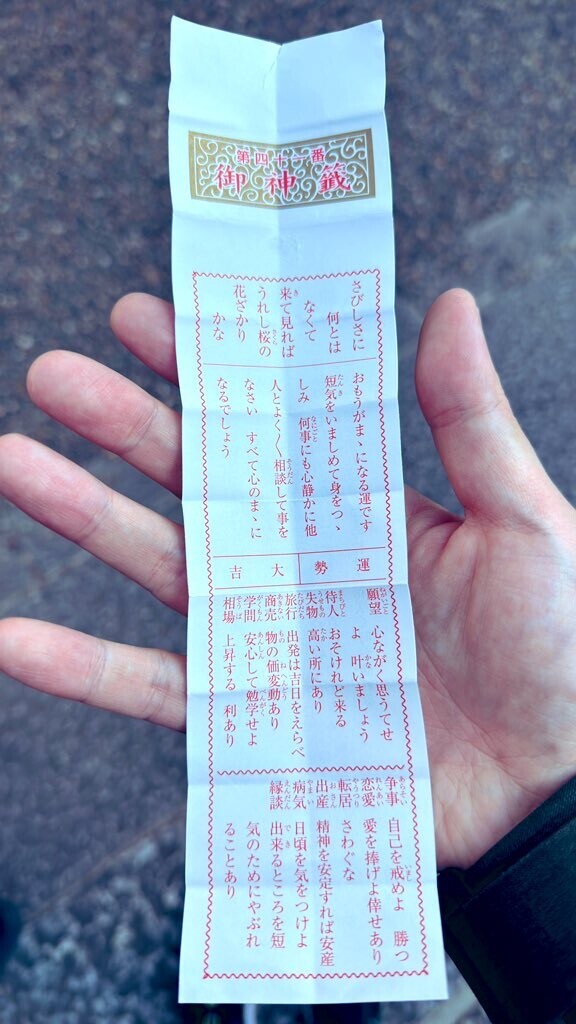 第四十一番
御神籤
さびしさに
何とは
なくて
来て見れば
うれし桜の
花ざかり
かな
おもうがまゝになる運です
短気をいましめて身をつゝ
しみ　何事にも心静かに他
人とよく〱相談して事を
なさい　すべて心のまゝに
なるでしょう
運勢　大吉
願望　心ながく思うてせ
よ　叶いましょう
待人　おそけれど来る
失物　高い所にあり
旅行　出発は吉日をえらべ
商売　物の価変動あり
学問　安心して勉学せよ
相場　上昇する　利あり
争事　自己を戒めよ　勝つ
恋愛　愛を捧げよ倖せあり
転居　さわぐな
出産　精神を安定すれば安産
病気　日頃を気をつけよ
縁談　出来るところを短
気のためにやぶれ
ることあり